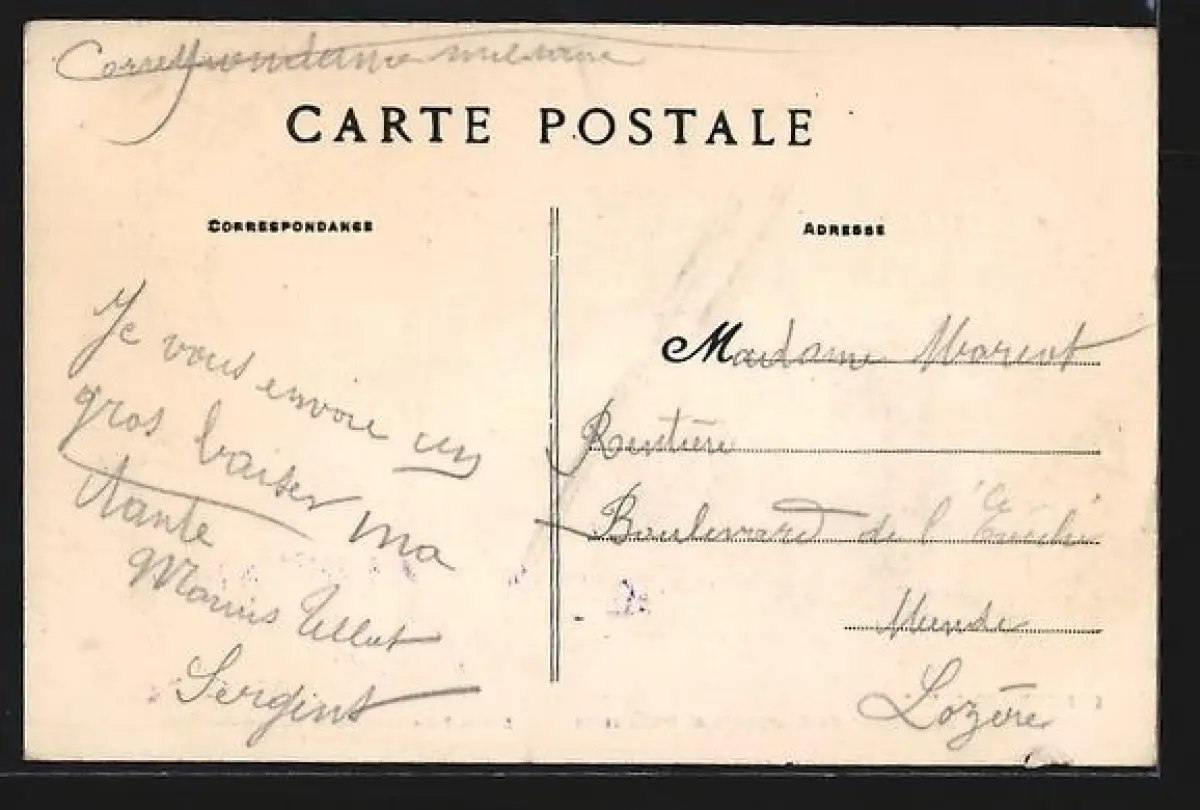 Correspondance militaire
CARTE POSTALE
CORRESPONDANCE
Je vous envoie un
gros baiser ma
tante
Marius
Sergent
ADRESSE
Madame
Rentière
Boulevard de l'
Mende
Lozère